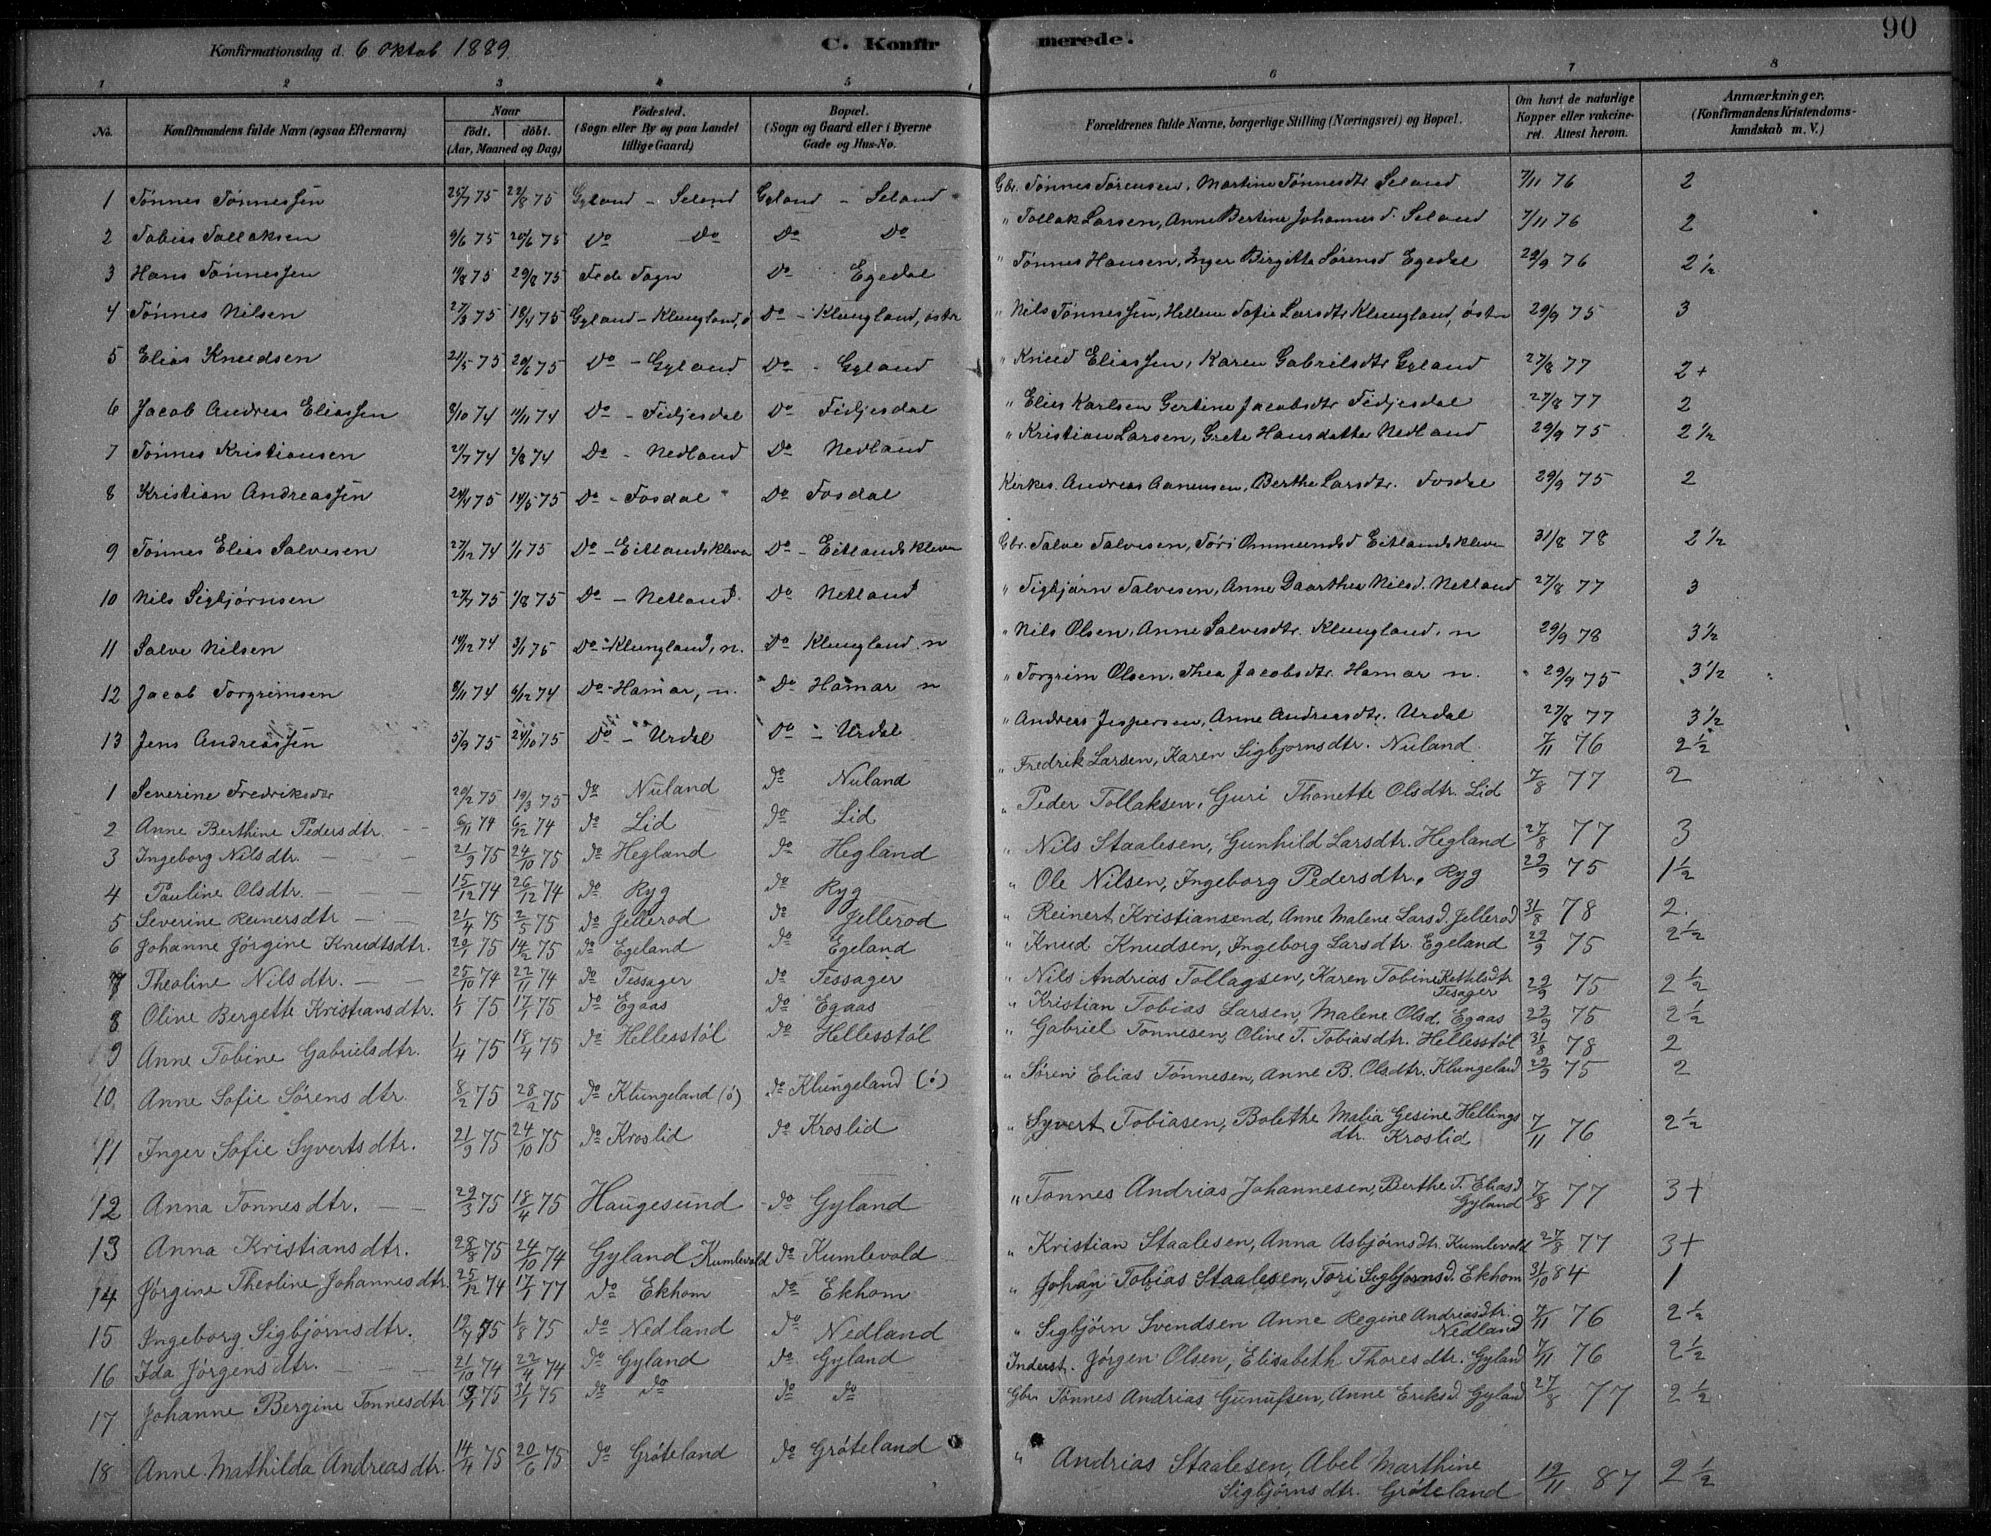 Konfirmationsdag d. 6 Oktob 1889. C. Konfirmerede. 90
1 2 3 4 5 6 7 8
No. | Konfirmandens fulde Navn (ogsaa Efternavn) | Naar født. døbt. (Aar, Maaned og Dag) | Fødested. (Sogn eller By og paa Landet tillige Gaard) | Bopæl. (Sogn og Gaard eller i Byerne Gade og Hus-No. | Forældrenes fulde Navne, borgerlige Stilling (Næringsvei) og Bopæl. | Om havt de naturlige Kopper eller vakcineret. Attest herom. | Anmærkninger. (Konfirmandens Kristendomskundskab m. V.)
1 Tønnes Tønnessen 25/7 75 22/8 75 Gyland - Seland Gyland - Seland Gbr. Tønnes Sørensen, Martine Tønnesdtr Seland 7/11 76 2
2 Tobias Tollaksen 9/6 75 20/6 75 Do Do Do Do " Tollak Larsen, Anne Bertine Johannesd. Seland 7/11 76 2
3 Hans Tønnessen 1/8 75 29/8 75 Fede Sogn Do Egedal " Tønnes Hansen, Inger Birgitte Sørensd Egedal 29/9 76 2 1/2
4 Tønnes Nilsen 27/3 75 18/4 75 Gyland - Klungland, ø Do - Klungland, østre " Nils Tønnessen, Hellene Sofie Larsdtr Klungland, østre 29/9 75 3
5 Elias Knudsen 21/5 75 20/6 75 Do - Gyland Do - Gyland " Knud Eliassen, Karen Gabrielsdtr Gyland 27/8 77 2+
6 Jacob Andreas Eliassen 8/10 74 11/11 74 Do - Fidjesdal Do Fidjesdal " Elias Karlsen Gertine Jacobsdtr Fidjesdal 27/8 77 2
7 Tønnes Kristiansen 21/7 74 2/8 74 Do - Nedland Do Nedland " Kristian Larsen, Grete Hansdatter Nedland 29/9 75 2 1/2
8 Kristian Andreassen 24/4 75 14/5 75 Do - Fosdal Do Fosdal Kirkes. Andreas Aanensen, Berthe Larsdtr. Fosdal 29/9 75 2
9 Tønnes Elias Salvesen 27/12 74 1/1 75 Do - Eitlandskleven Do - Eitlandskleven Gbr. Salve Salvesen, Tøri Ommundsd Eitlandskleven 31/8 78 2 1/2
10 Nils Sigbjørnsen 27/7 75 1/8 75 Do - Netland Do Netland " Sigbjørn Salvesen, Anne Daarthea Nilsd. Netland 27/8 77 3
11 Salve Nilsen 19/12 74 3/1 75 Do - Klungland, n. Do Klungland. n " Nils Olsen, Anne Salvesdtr. Klungland. n 29/9 78 3 1/2
12 Jacob Torgrimsen 9/11 74 6/12 74 Do - Hamar, n. Do Hamar n " Torgrim Olsen, Thea Jacobsdtr. Hamar n. 29/9 75 3 1/2
13 Jens Andreassen 5/9 75 24/10 75 Do - Urdal Do - Urdal " Andreas Jespersen, Anne Andreasdtr. Urdal 27/8 77 3 1/2
1 Severine Fredriksdtr 20/2 75 19/3 75 do Nuland do Nuland " Fredrik Larsen, Karen Sigbjørnsdtr. Nuland 7/11 76 2 1/2
2 Anne Berthine Pedersdtr. 6/11 74 6/12 74 do Lid do Lid " Peder Tollaksen, Guri Thonette Olsdtr. Lid 7/8 77 2
3 Ingeborg Nilsdtr. 21/9 75 24/10 75 do Hegland do Hegland " Nils Staalesen, Gunhild Larsdtr. Hegland 27/8 77 3
4 Pauline Olsdtr. 15/12 74 26/12 74 do Ryg do Ryg " Ole Nilsen, Ingeborg Pedersdtr. Ryg 29/9 75 1 1/2
5 Severine Reinersdtr 21/4 75 2/5 75 do Jellerod do Jellerod " Reinert Kristiansend, Anne Malene Larsd. Jellerod 31/8 78 2.
6 Johanne Jørgine Knudtsdtr. 20/1 75 14/2 75 do Egeland do Egeland " Knud Knudsen, Ingeborg Larsdtr. Egeland 29/9 75 2 1/2
7 Theoline Nilsdtr. 25/10 74 22/11 74 do Tessager do Tessager " Nils Andrias Tollagsen, Karen Tobine Kettelsdtr Tesager 29/9 75 2 1/2
8 Oline Bergette Kristiansdtr. 1/1 75 17/1 75 do Egaas do Egaas " Kristian Tobias Larsen, Malene Olsd. Egaas 29/9 75 2 1/2
9 Anne Tobine Gabrielsdtr. 1/4 75 18/4 75 do Hellesstøl do Hellesstøl " Gabriel Tønnesen, Oline T. Tobiasdtr. Hellesstøl 31/8 78 2
10 Anne Sofie Sørensdtr. 8/2 75 28/2 75 do Klungeland (ø) do Klungeland (ø) " Søren Elias Tønnesen, Anne B. Olsdtr. Klungeland 29/9 75 2
11 Inger Sofie Syvertsdtr. 21/9 75 24/10 75 do Kroslid do Kroslid " Syvert Tobiasen, Bolethe Malia Gesine Hellingsdtr. Kroslid 7/11 76 2 1/2
12 Anna Tonnesdtr. 29/3 75 18/4 75 Haugesund do Gyland " Tonnes Andrias Johannesen, Berthe T. Eliasd Gyland 7/8 77 3+
13 Anna Kristiansdtr. 28/8 75 24/10 74 Gyland Kumlevold do Kumlevold " Kristian Staalesen, Anna Asbjørnsdtr. Kumlevold 27/8 77 3+
14 Jørgine Theoline Johannesdtr 25/12 74 17/1 77 do Ekhom do Ekhom " Johan Tobias Staalesen, Tori Sigbjornsd. Ekhom 31/10 84 1
15 Ingeborg Sigbjørnsdtr. 12/7 75 1/8 75 do Nedland do Nedland " Sigbjørn Svendsen Anne Regine Andreasdtr. Nedland 7/11 76 2 1/2
16 Ida Jørgensdtr. 21/10 74 22/4 74 do Gyland do Gyland Inderst. Jørgen Olsen, Elisabeth Thoresdtr. Gyland 7/11 76 2 1/2
17 Johanne Bergine Tonnesdtr 13/1 75 31/1 75 do do do do Gbr Tønnes Andrias Gunufsen, Anne Eriksd. Gyland 27/8 77 2 1/2
18 Anne Mathilda Andreasdtr. 14/4 75 20/6 75 do Grøteland do Grøteland " Andrias Staalesen, Abel Marthine Sigbjørnsdtr. Grøteland 19/11 87 2 1/2